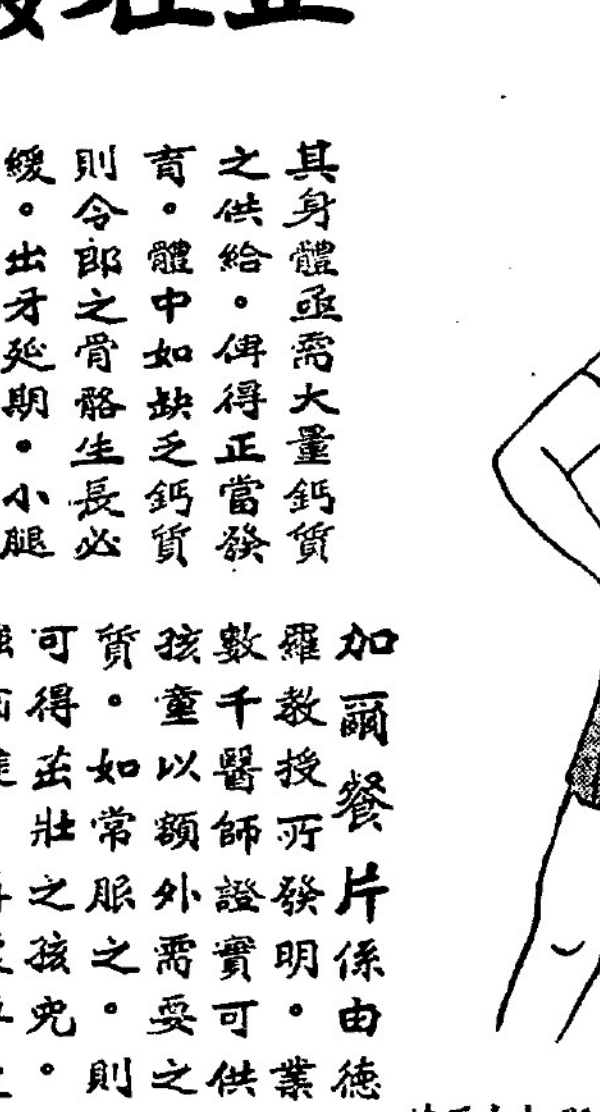 其身體亟需大量鈣質
之供給。俾得正當發
育。體中如缺乏鈣質
則令郎之骨骼生長必
緩。出牙延期。小腿
加爾餐片係由德
羅教授所發明。業
數千醫師證實可供
孩童以額外需要之
質。如常服之。則
可得茁壯之孩兒。